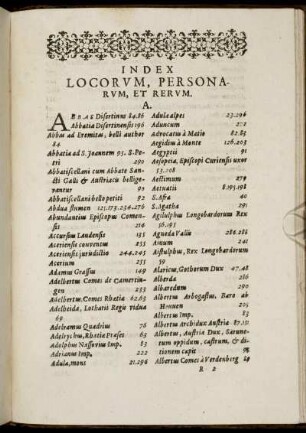 INDEX
LOCORVM, PERSONA-
RVM, ET RERVM.
A.
ABBAE Disertinus 84.86
Abbatia Disertinensis 196
Abbas ad Eremitas, belli author
84
Abbatia ad S. Joannem 95. S. Pe-
tri 290
Abbatiscellani cum Abbate Sancti
Galli & Austriacis bellige-
rantur 92
Abbatiscellani bello periti 92
Abdua flumen 125.173.276.290
Abundantius Episcopus Comen-
sis 216
Accursius Laudensis 195
Acerienses conventus 253
Aceriensis jurisdictio 244.245
Acerium 253
Adamus Grassius 149
Adelbertus Comes de Camertin-
gen 235
Adelbertus Comes Rhetia 62.63
Adelheida, Lotharii Regis vidua
69
Adobamus Quadrius 76
Adelrychus, Rhetia Præses 63
Adolphus Nassovius Imp. 83
Adrianus Imp. 222
Adula, mons 21.296
Adulæ alpes 23.296
Aduncum 272
Advocatus à Matia 82.85
Aegidius à Monte 126.203
Aegyptii 91
Aesopeia, Episcopi Curiensis uxor
53.208
Aestimum 279
Aetnatii 8.195.198
S. Afra 40
S. Agatha 291
Agilulphus Longobardorum Rex
56.195
Agneda Vallis 286.288
Ainum 241
Aistulphus, Rex Longobardorum
59
Alaricus, Gothorum Dux 47.48
Alberda 256
Albaredum 290
Albertus Arbogastus, Baro ab
Hewen 205
Albertus Imp. 83
Albertus Archidux Austria 87.211
Albertus, Austria Dux, Sarune-
tum oppidum, castrum, & di-
tionem capit 98
Albertus Comes à Verdenberg 24
B 2